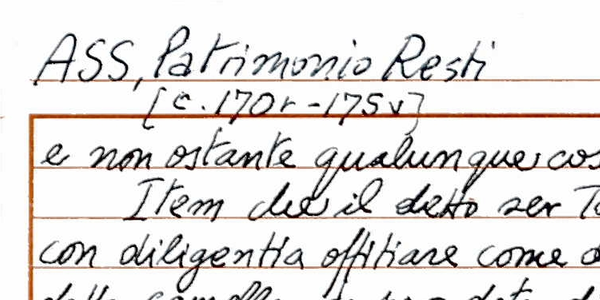 ASS, Patrimonio Resti
[c. 170r - 175v]
e non ostante qualunque cos
Item che il detto ser To
con diligentia offitiare come d